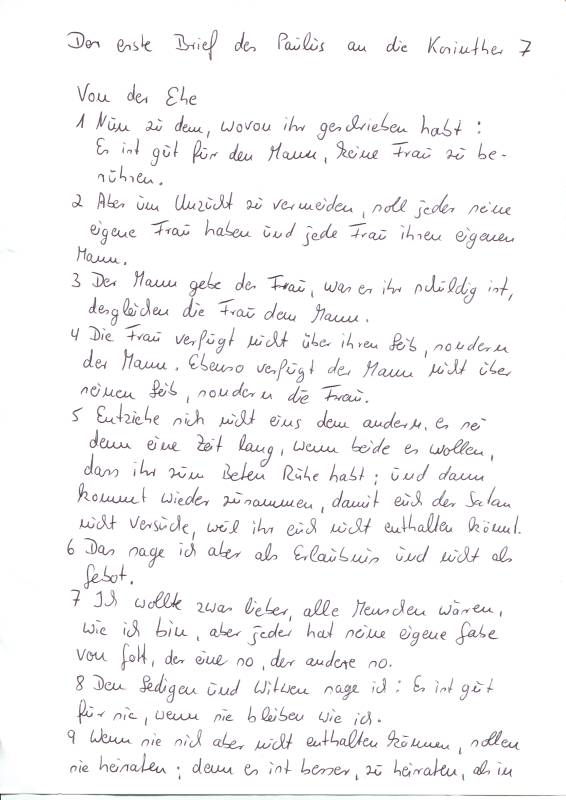 Der erste Brief des Paulus an die Korinther 7
Von der Ehe
1 Nun zu dem, wovon ihr geschrieben habt:
Es ist gut für den Mann, keine Frau zu be-
rühren.
2 Aber um Unzucht zu vermeiden, soll jeder seine
eigene Frau haben und jede Frau ihren eigenen
Mann.
3 Der Mann gebe der Frau, was er ihr schuldig ist,
desgleichen die Frau dem Mann.
4 Die Frau verfügt nicht über ihren Leib, sondern
der Mann. Ebenso verfügt der Mann nicht über
seinen Leib, sondern die Frau.
5 Entziehe sich nicht eins dem andern, es sei
denn eine Zeit lang, wenn beide es wollen,
dass ihr zum Beten Ruhe habt; und dann
kommt wieder zusammen, damit euch der Satan
nicht versuche, weil ihr euch nicht enthalten könnt.
6 Das sage ich aber als Erlaubnis und nicht als
Gebot.
7 Ich wollte zwar lieber, alle Menschen wären,
wie ich bin, aber jeder hat seine eigene Gabe
von Gott, der eine so, der andere so.
8 Den Ledigen und Witwen sage ich: Es ist gut
für sie, wenn sie bleiben wie ich.
9 Wenn sie sich aber nicht enthalten können, sollen
sie heiraten; denn es ist besser, zu heiraten, als in